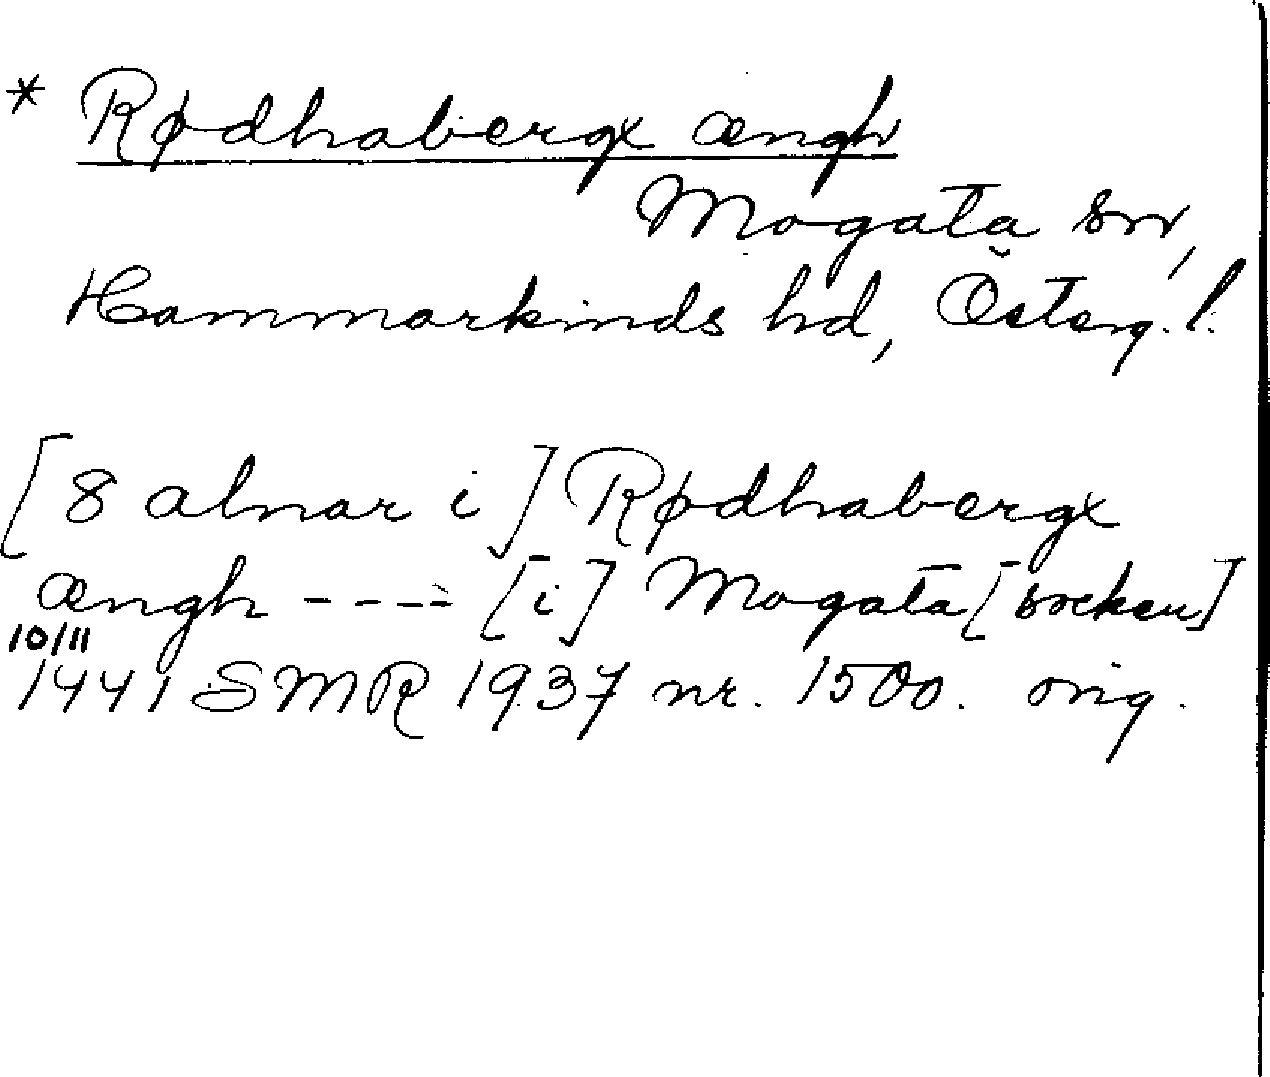 * Rødhabergx ængh
Mogata sn,
Hammarkinds hd, Österg. l.
[8 alnar i] Rødhabergx
ængh ---- [i] Mogata [socken]
10/11
1441 SMR 1937 nr. 1500. orig.